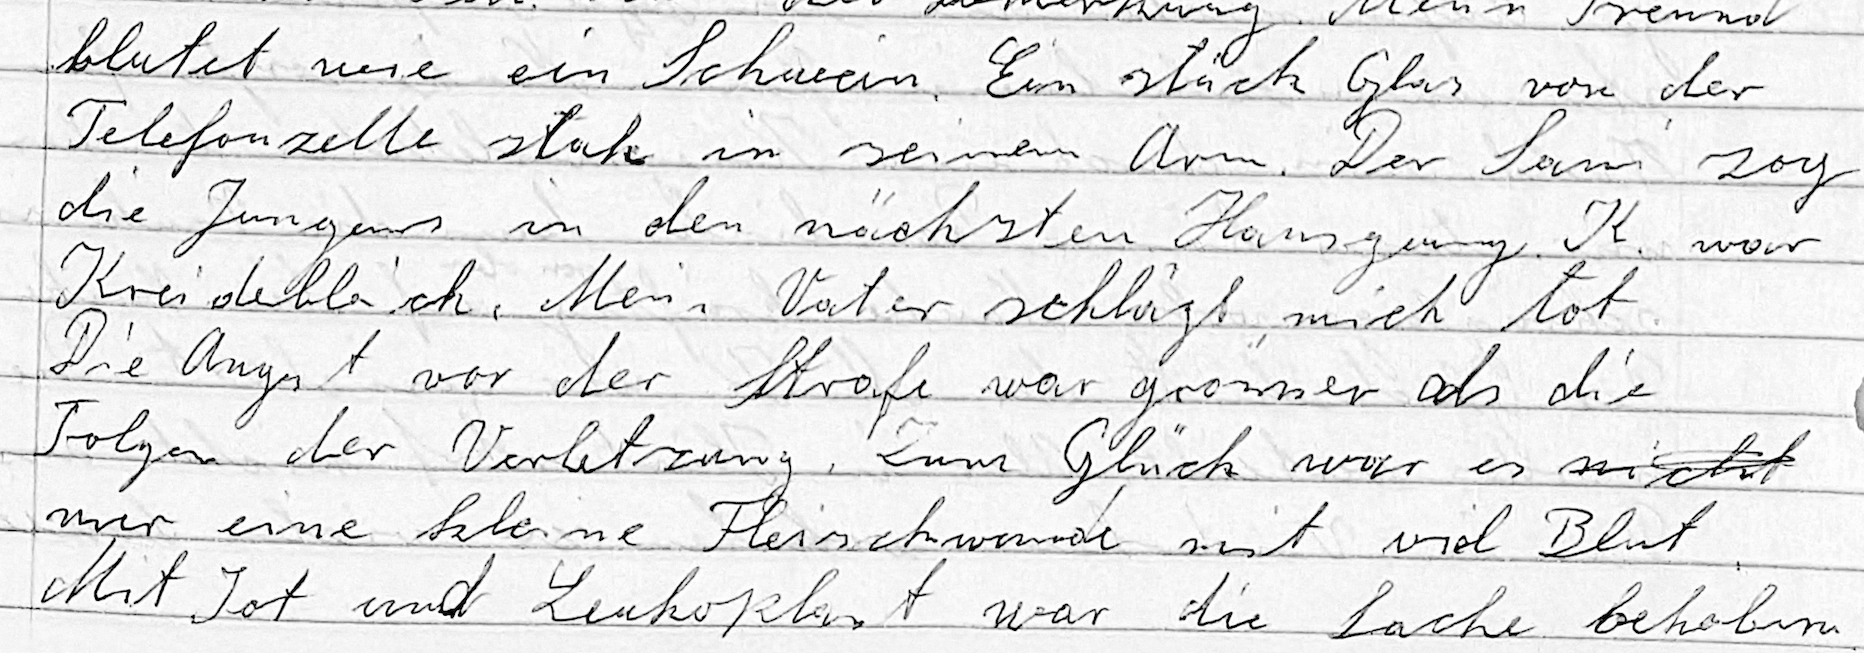 Bemerkung. Mein Freund
blutet wie ein Schwein. Ein stück Glas von der
Telefonzelle stak in seinem Arm. Der Sani zog
die Jungens in den nächsten Hausgang. K. war
Kreidebläich. Mein Vater schlägt mich tot.
Die Angst vor der Strafe war grösser als die
Folgen der Verletzung. Zum Glück war es nicht
nur eine kleine Fleischwunde mit viel Blut
Mit Jot und Leukoplast war die Sache behoben